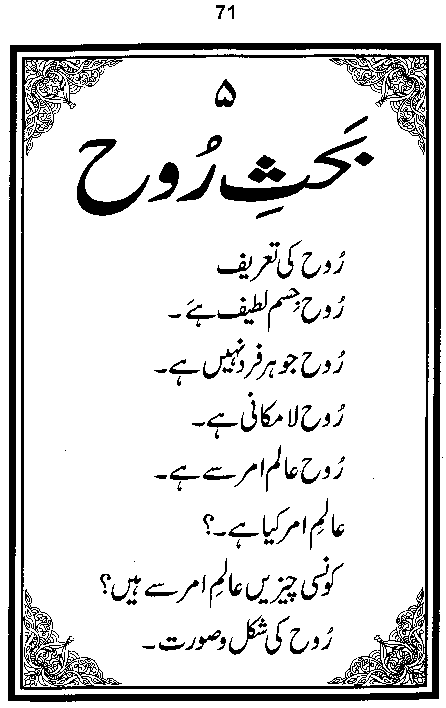 71
۵
بَحثِ رُوح
رُوح کی تعریف
رُوح جِسم لطیف ہَے۔
رُوح جوہر فرد نہیں ہے۔
رُوح لامکانی ہے۔
رُوح عالم امر سے ہے۔
عالمِ امر کیا ہے۔؟
کونسی چیزیں عالمِ امر سے ہیں؟
رُوح کی شکل و صورت۔